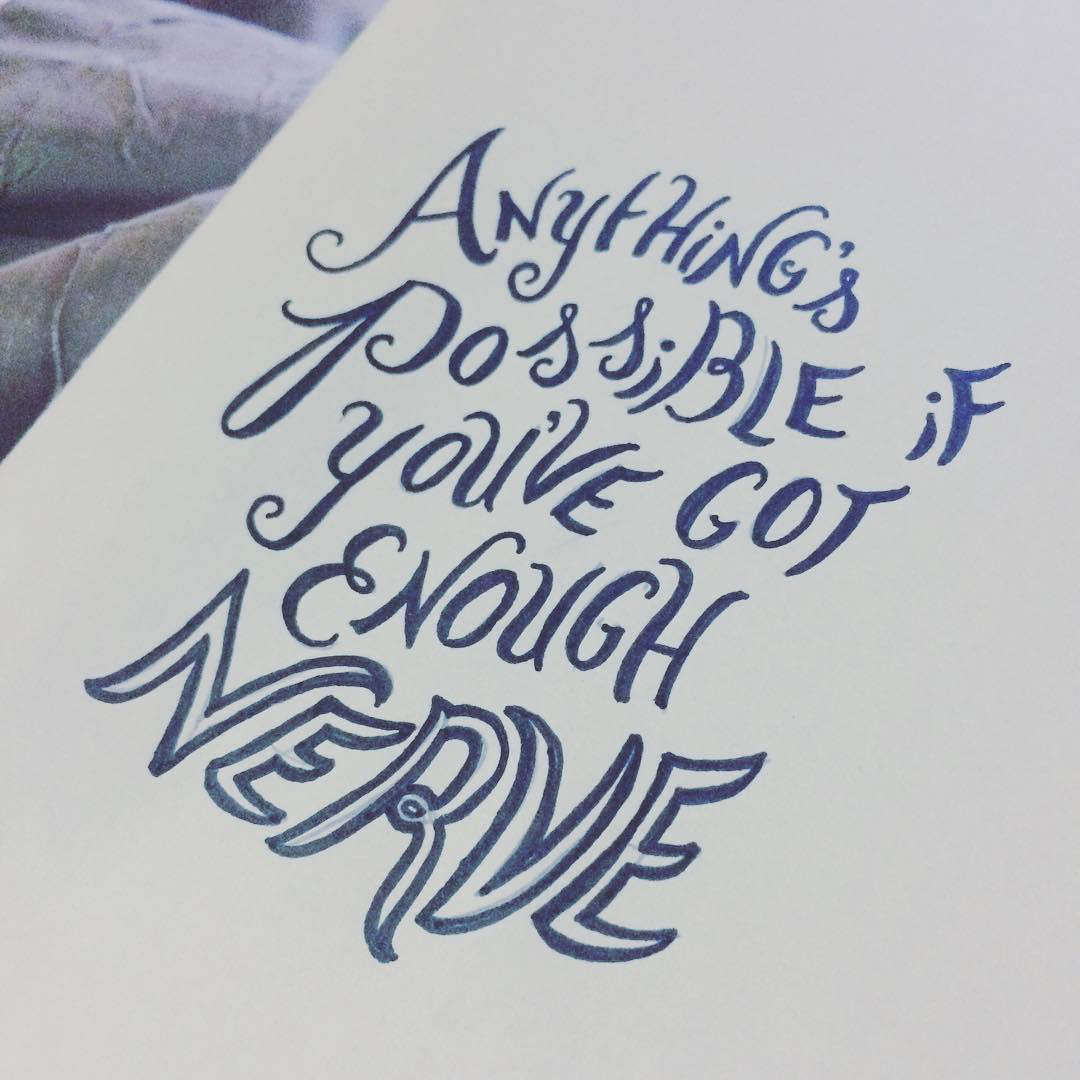 ANYTHiNG's
POssiBLE iF
YOU'VE GOT
ENOUGH
NERVE